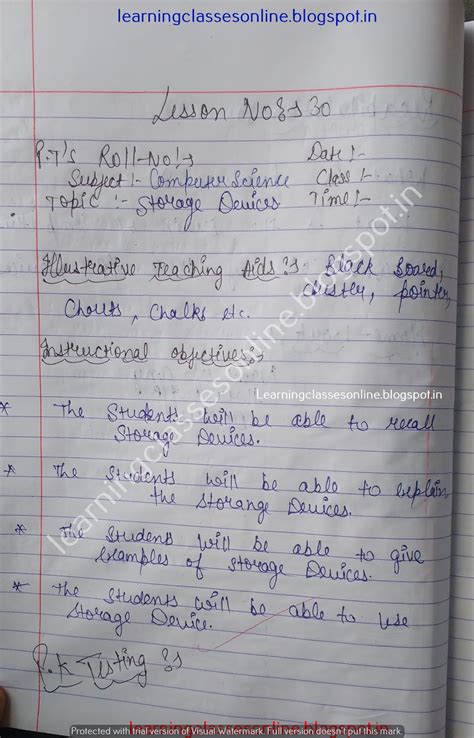 learningclassesonline.blogspot.in
Lesson No:- 30
P.T's Roll-No:- Date:-
Subject:- Computer Science Class:-
Topic:- Storage Devices Time:-
Illustrative Teaching Aids:- Black Board,
duster, pointer,
Charts, Chalks etc.
Instructional objectives:-
Learningclassesonline.blogspot.in
* The Students will be able to recall
Storage Devices.
* The Students will be able to explain
the Storange Devices.
* The Students will be able to give
examples of Storage Devices.
* The Students will be able to use
Storage Device.
P.K Testing:-
learningclassesonline.blogspot.in
Protected with trial version of Visual Watermark. Full version doesn't put this mark.
learningclassesonline.blogspot.in